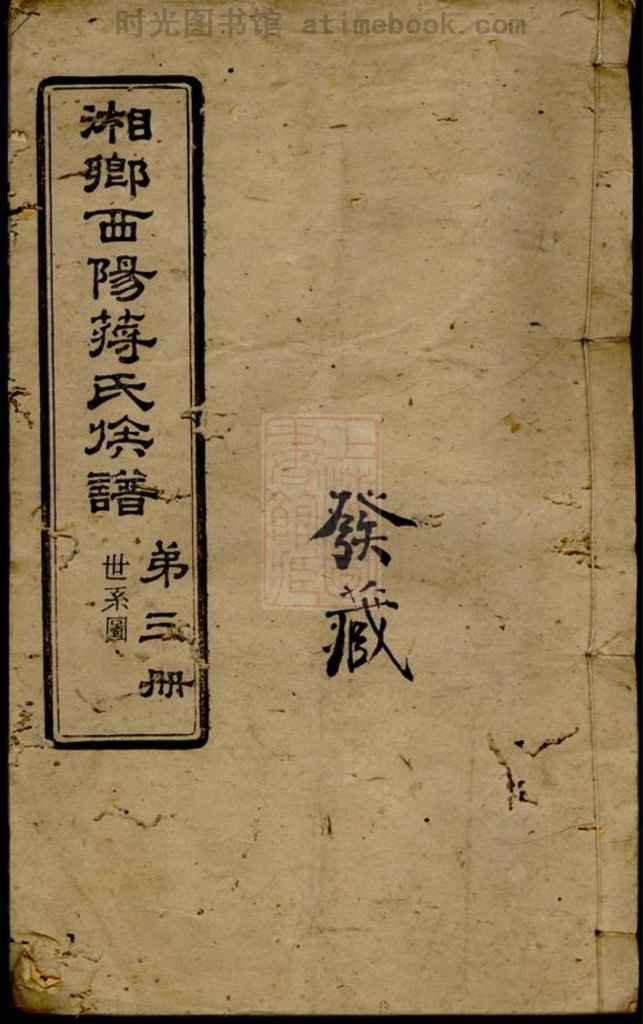 时光图书馆 atimebook.com
湘鄉西陽蔣氏族譜
弟三册
世系圖
發藏